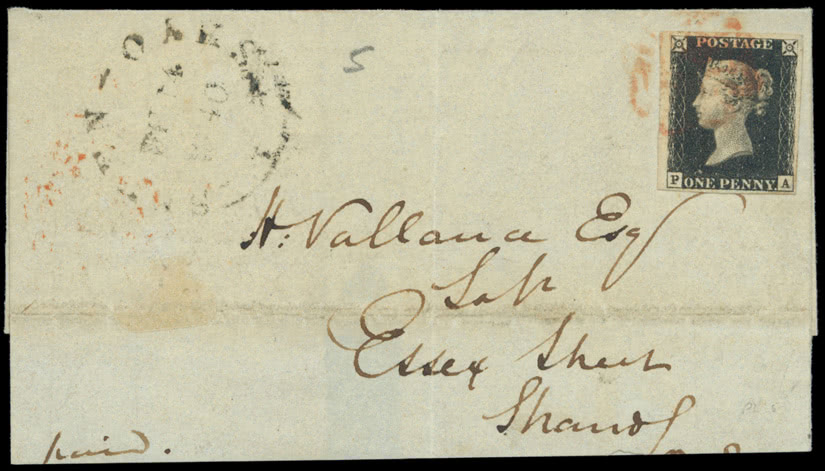 5
POSTAGE
P ONE PENNY A
H: Vallance Esq
Essex Street
Strand
paid.
PL 5